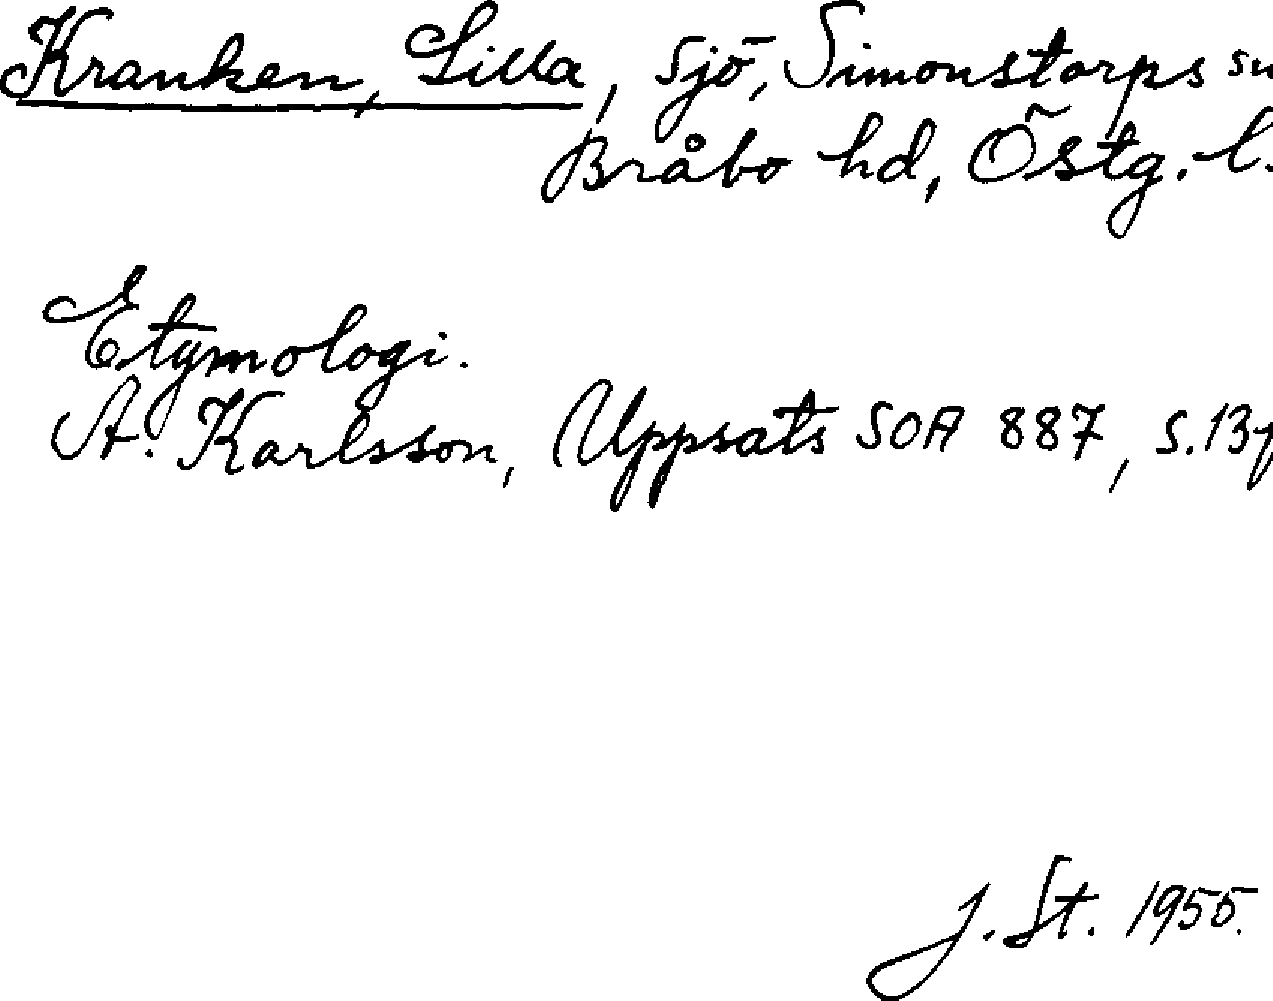 Kranken, Lilla, sjö, Simonstorps sn
Bråbo hd, Östg. l.
Etymologi.
A. Karlsson, Uppsats SOA 887, s. 13f
J. St. 1955.